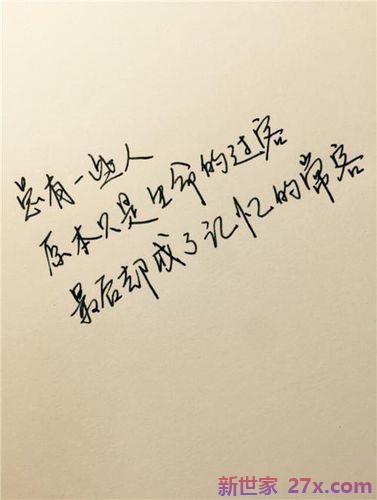 总有一些人
原本只是生命的过客
最后却成了记忆的常客
新世家 27x.com